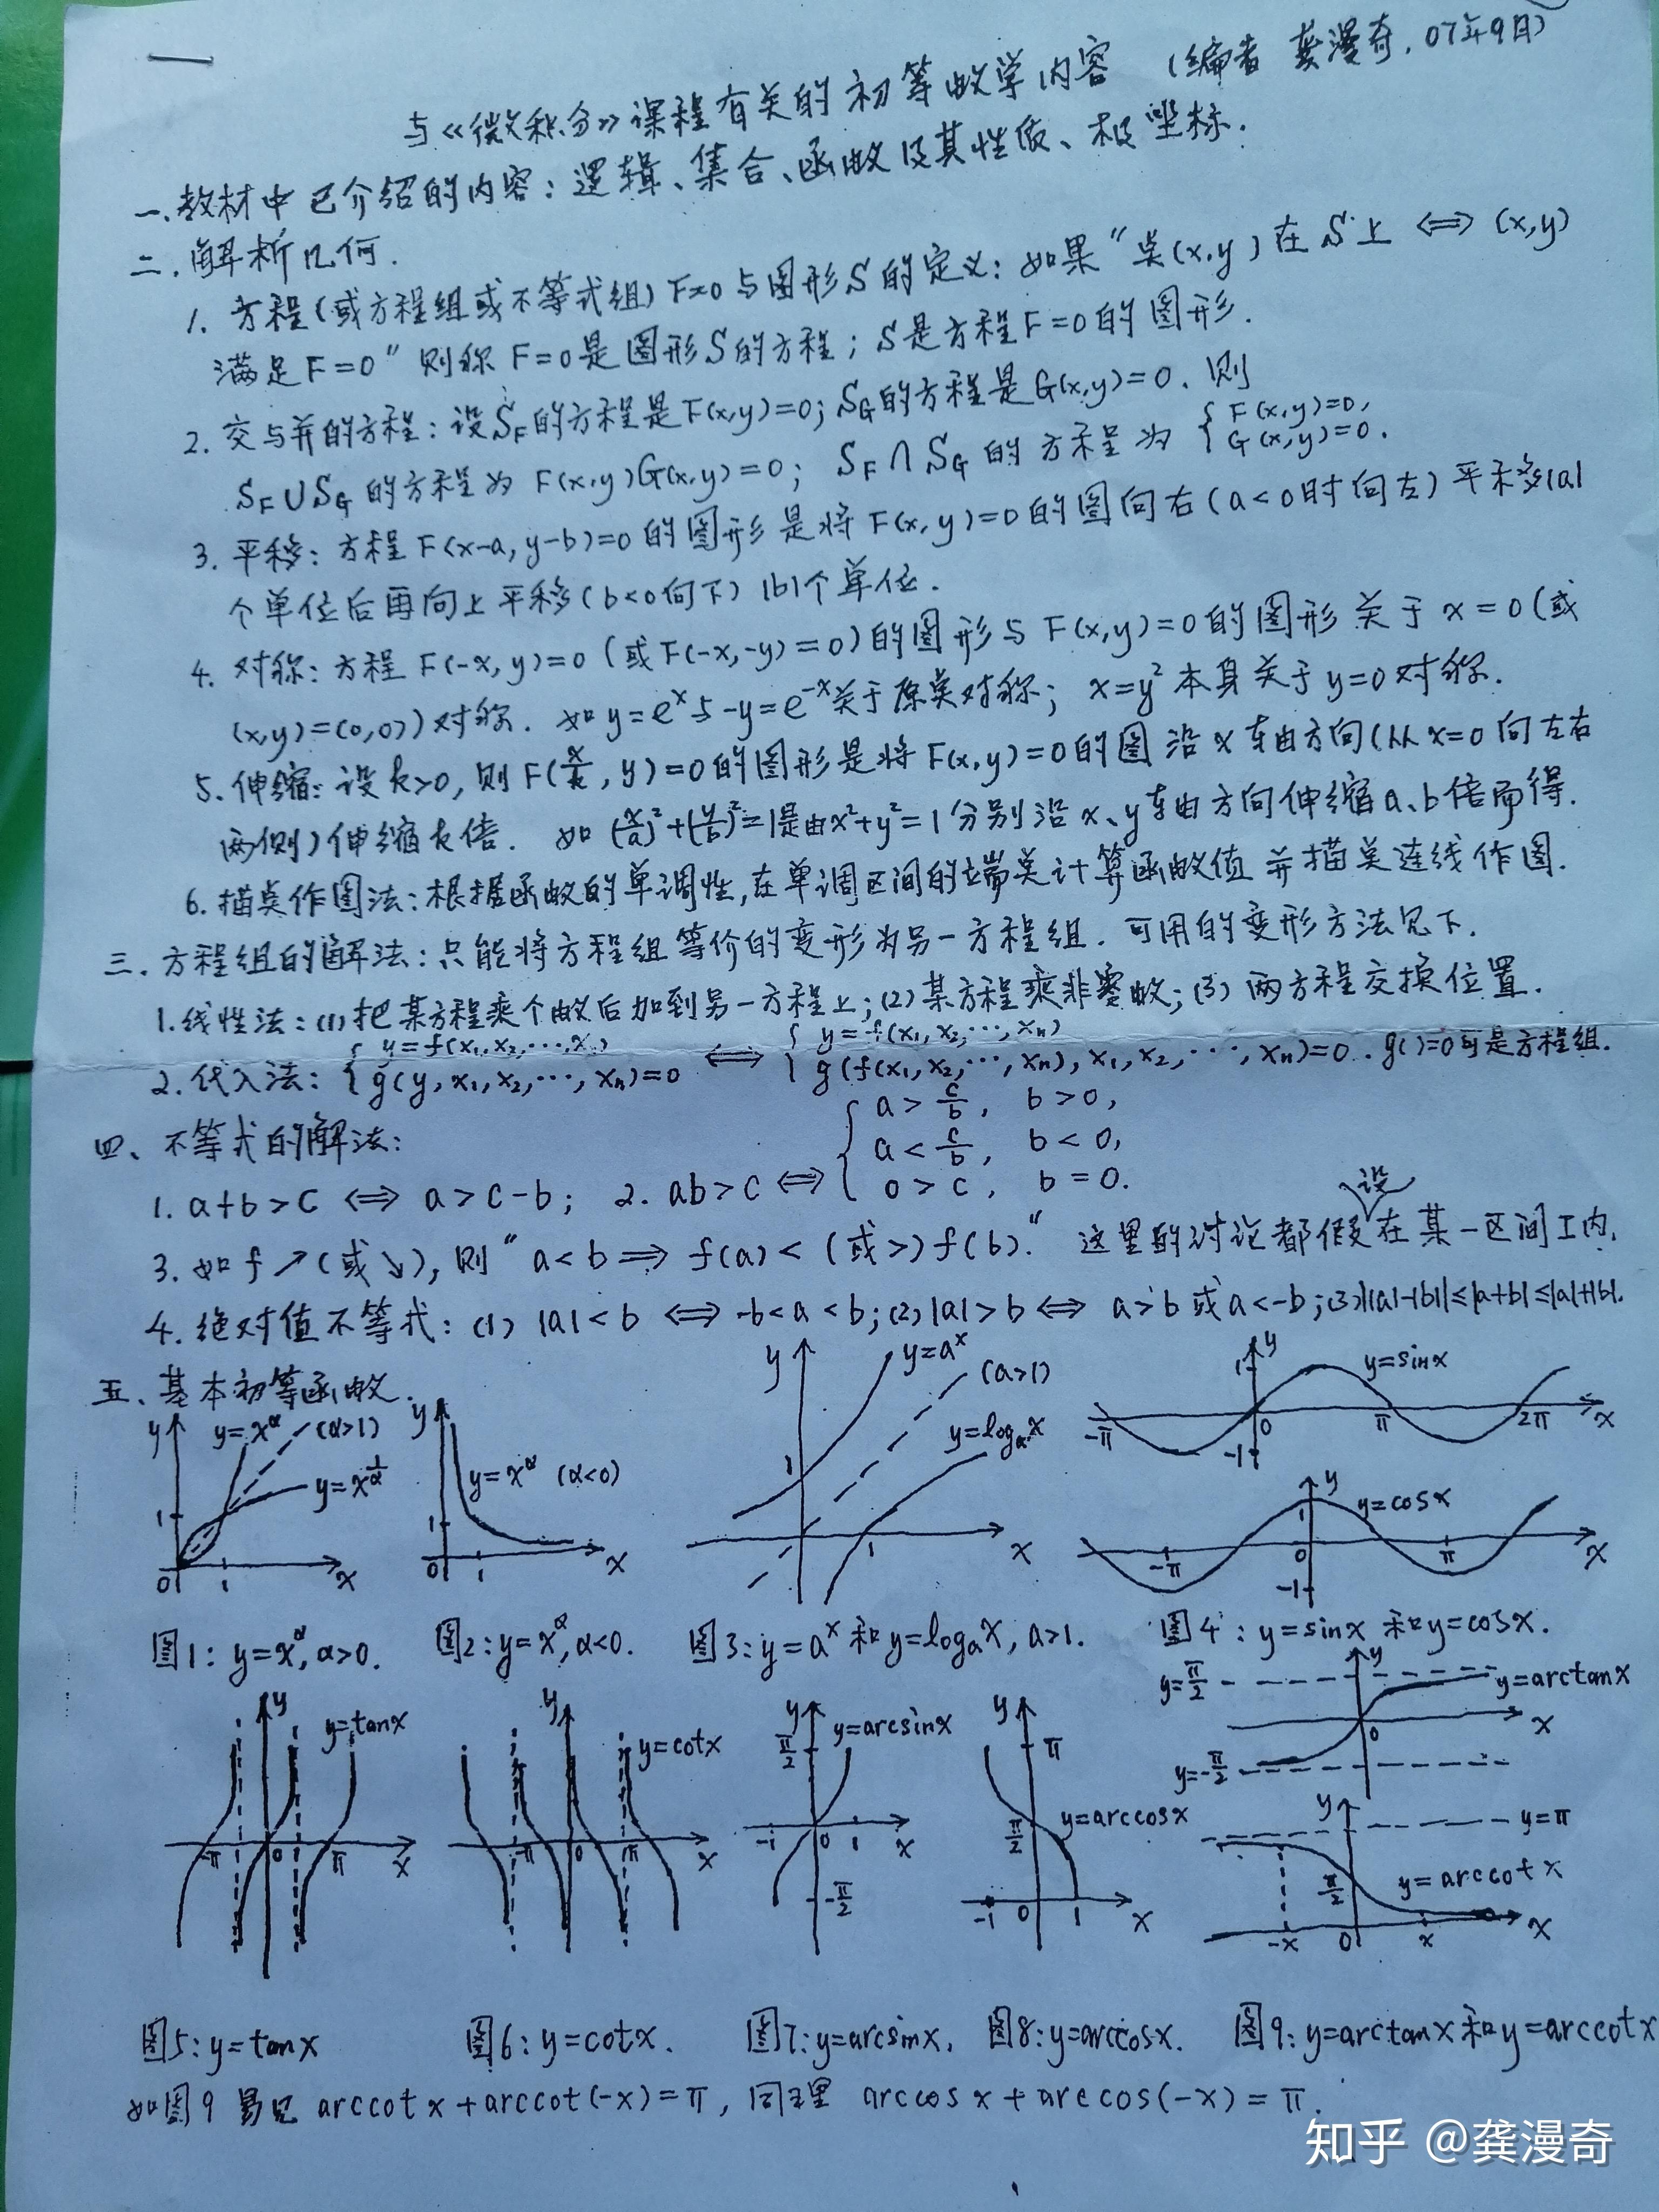 与《微积分》课程有关的初等数学内容 (编者 龚漫奇, 07年9月)
一. 教材中已介绍的内容: 逻辑、集合、函数及其性质、极坐标.
二. 解析几何.
1. 方程(或方程组或不等式组) F=0与图形S的定义: 如果"点(x,y)在S上 ⟺ (x,y)
满足F=0" 则称F=0是图形S的方程; S是方程F=0的图形.
2. 交与并的方程: 设S_F的方程是F(x,y)=0; S_G的方程是G(x,y)=0. 则
S_F∪S_G的方程为 F(x,y)G(x,y)=0; S_F∩S_G的方程为 { F(x,y)=0, G(x,y)=0.
3. 平移: 方程F(x-a, y-b)=0的图形是将F(x,y)=0的图向右(a<0时向左)平移|a|
个单位后再向上平移(b<0向下)|b|个单位.
4. 对称: 方程 F(-x,y)=0 (或F(-x,-y)=0)的图形与F(x,y)=0的图形关于x=0(或
(x,y)=(0,0))对称. 如y=e^x与-y=e^{-x}关于原点对称; x=y²本身关于y=0对称.
5. 伸缩: 设k>0, 则F(x/k, y)=0的图形是将F(x,y)=0的图沿x轴方向(从x=0向左右
两侧)伸缩k倍. 如(x/a)²+(y/b)²=1是由x²+y²=1分别沿x、y轴方向伸缩a、b倍而得.
6. 描点作图法: 根据函数的单调性, 在单调区间的端点计算函数值并描点连线作图.
三. 方程组的解法: 只能将方程组等价的变形为另一方程组. 可用的变形方法见下.
1. 线性法: (1) 把某方程乘个数后加到另一方程上; (2) 某方程乘非零数; (3) 两方程交换位置.
2. 代入法: { y=f(x₁,x₂,⋯,xₙ) g(y,x₁,x₂,⋯,xₙ)=0 ⟺ { y=f(x₁,x₂,⋯,xₙ) g(f(x₁,x₂,⋯,xₙ),x₁,x₂,⋯,xₙ)=0. g()=0可是方程组.
四、不等式的解法:
1. a+b>c ⟺ a>c-b; 2. ab>c ⟺ { a>c/b, b>0, a<c/b, b<0, 0>c, b=0.
3. 如f↗(或↘), 则"a<b ⟹ f(a)<(或>)f(b)." 这里的讨论都假设在某一区间I内.
4. 绝对值不等式: (1) |a|<b ⟺ -b<a<b; (2) |a|>b ⟺ a>b或a<-b; (3) ||a|-|b||≤|a+b|≤|a|+|b|.
五、基本初等函数.
y y=x^α (α>1) y=x^{1/α} 1 0 1 x
y y=x^α (α<0) 1 0 1 x
y y=a^x (a>1) y=logₐx 1 1 x
y 1 y=sinx -π 0 π 2π x -1
y 1 y=cosx -π 0 π x -1
图1: y=x^α, α>0. 图2: y=x^α, α<0. 图3: y=a^x 和y=logₐx, a>1. 图4: y=sinx 和y=cosx.
y y=tanx -π 0 π x
y y=cotx -π 0 π x
y π/2 y=arcsinx -1 0 1 x -π/2
y π y=arccosx π/2 -1 0 1 x
y=π/2 y y=arctanx 0 x y=-π/2
y y=π π/2 y=arccotx -x 0 x x
图5: y=tanx 图6: y=cotx. 图7: y=arcsinx. 图8: y=arccosx. 图9: y=arctanx和y=arccotx
如图9易见 arccotx+arccot(-x)=π, 同理 arccosx+arccos(-x)=π.
知乎 @龚漫奇